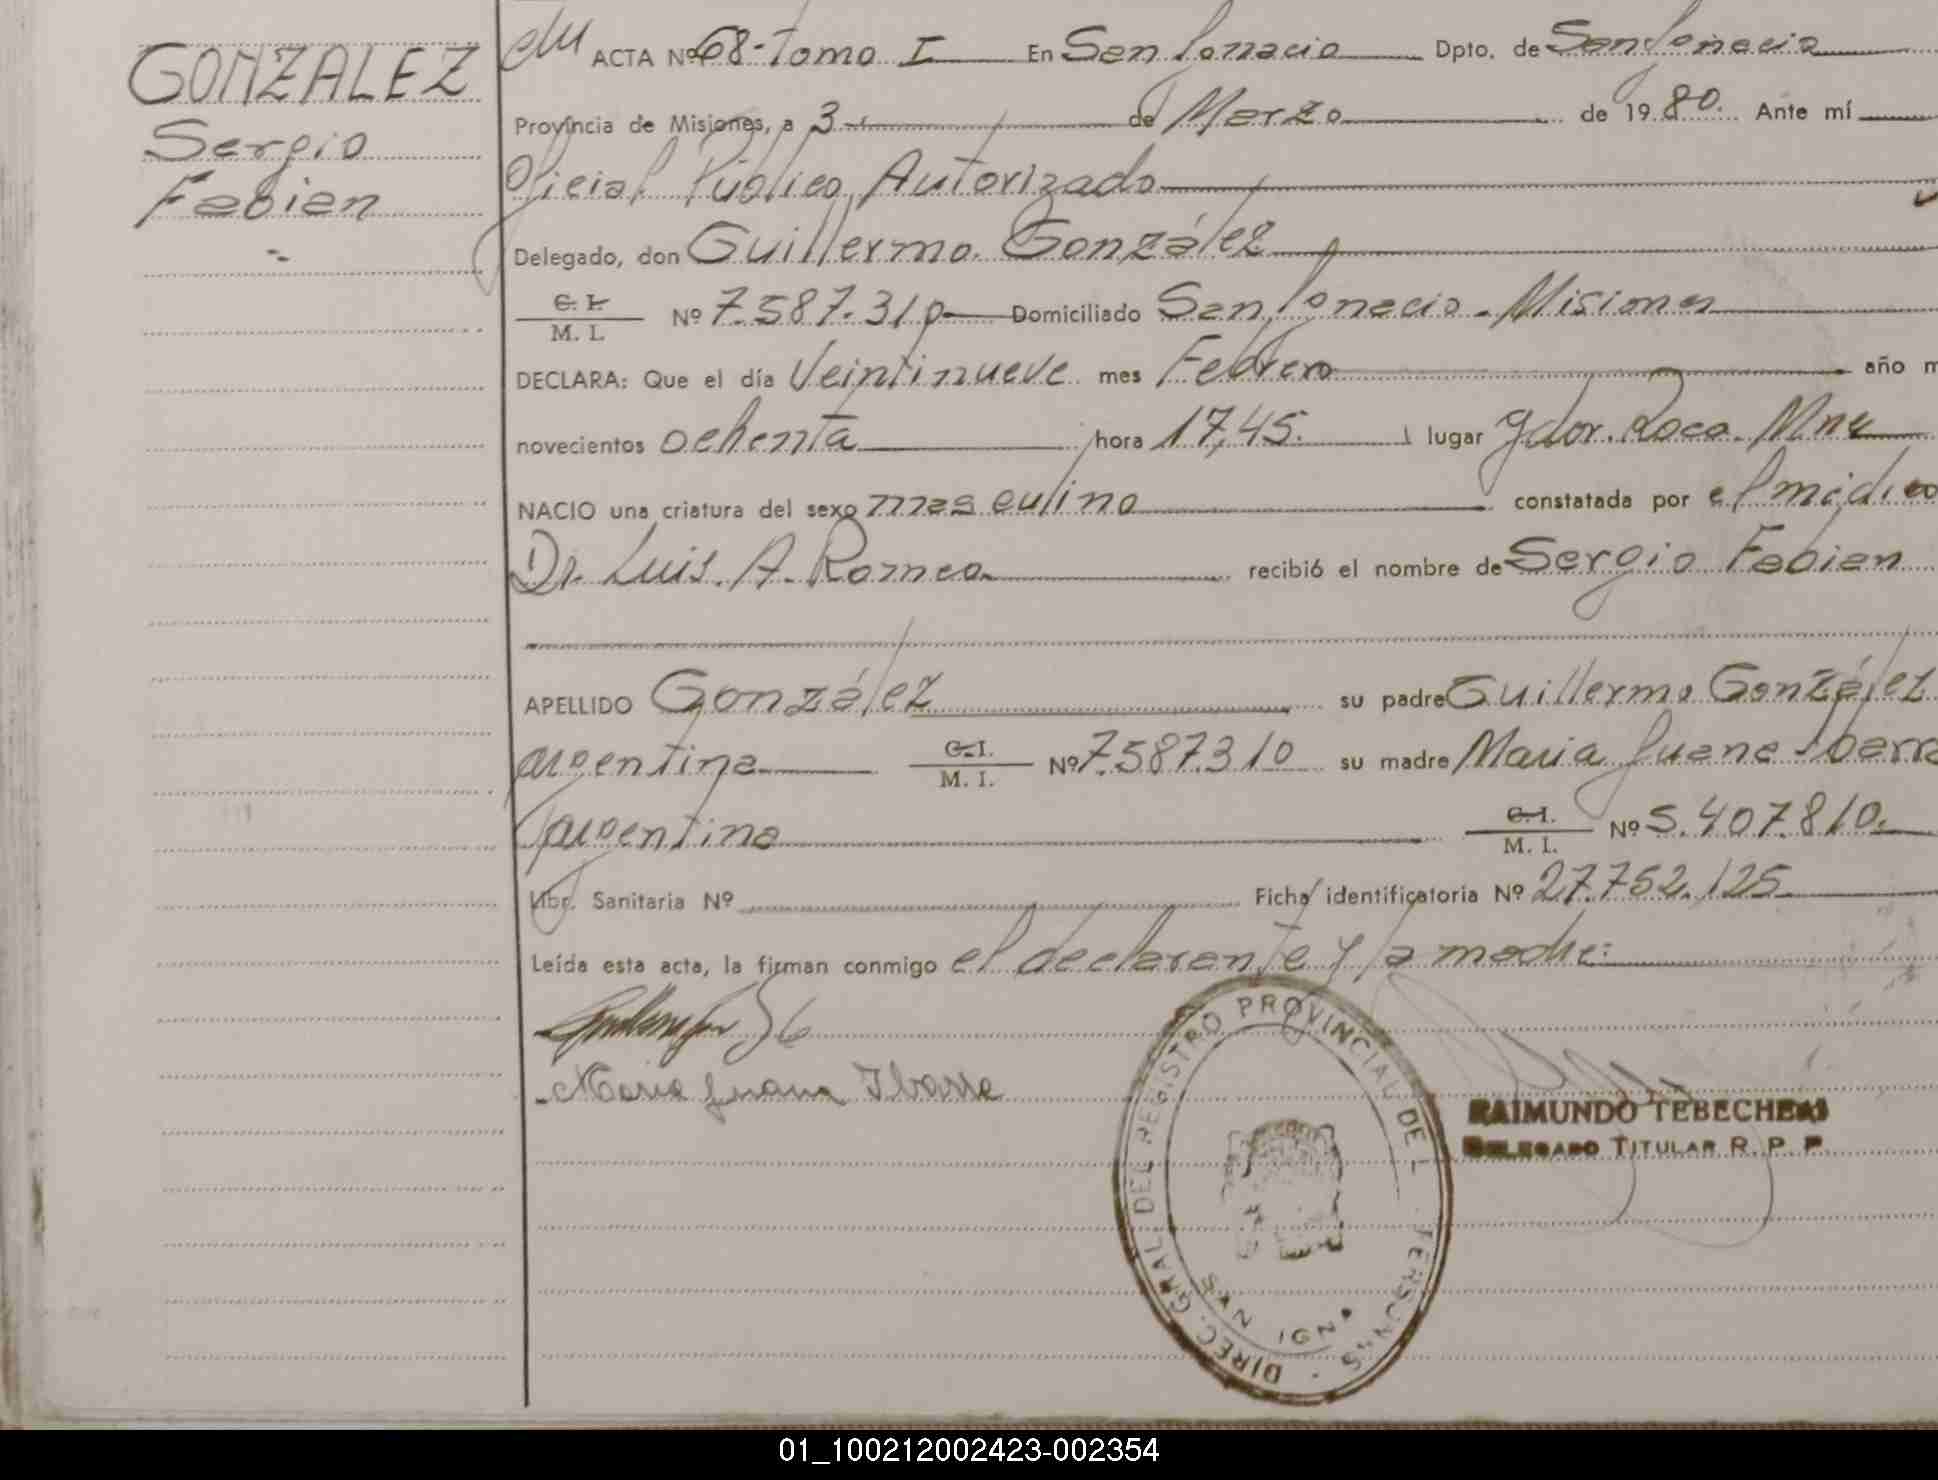 GONZALEZ
Sergio
Fabian
ACTA Nº 68-Tomo I En San Ignacio Dpto. de San Ignacio
Provincia de Misiones, a 3 de Marzo de 1980. Ante mí
Oficial Público Autorizado
Delegado, don Guillermo González
C. I.
M. I. Nº 7.587.310 Domiciliado San Ignacio - Misiones
DECLARA: Que el día Veintinueve mes Febrero año m
novecientos ochenta hora 17,45. lugar Gdor. Roca. Mnes
NACIO una criatura del sexo masculino constatada por el médico
Dr. Luis. A. Romeo recibió el nombre de Sergio Fabian
APELLIDO González su padre Guillermo González
argentina C.I.
M. I. Nº 7.587.310 su madre Maria Juana Ibarra
argentina C.I.
M. I. Nº 5.407.810.
Libr. Sanitaria Nº Ficha identificatoria Nº 27.752.125
Leída esta acta, la firman conmigo el declarante y la madre:
Maria Juana Ibarra
DIREC. GRAL. DEL REGISTRO PROVINCIAL DE L PERSONAS
SAN IGNA
RAIMUNDO TEBECHERI
DELEGADO TITULAR R. P. P.
01_100212002423-002354